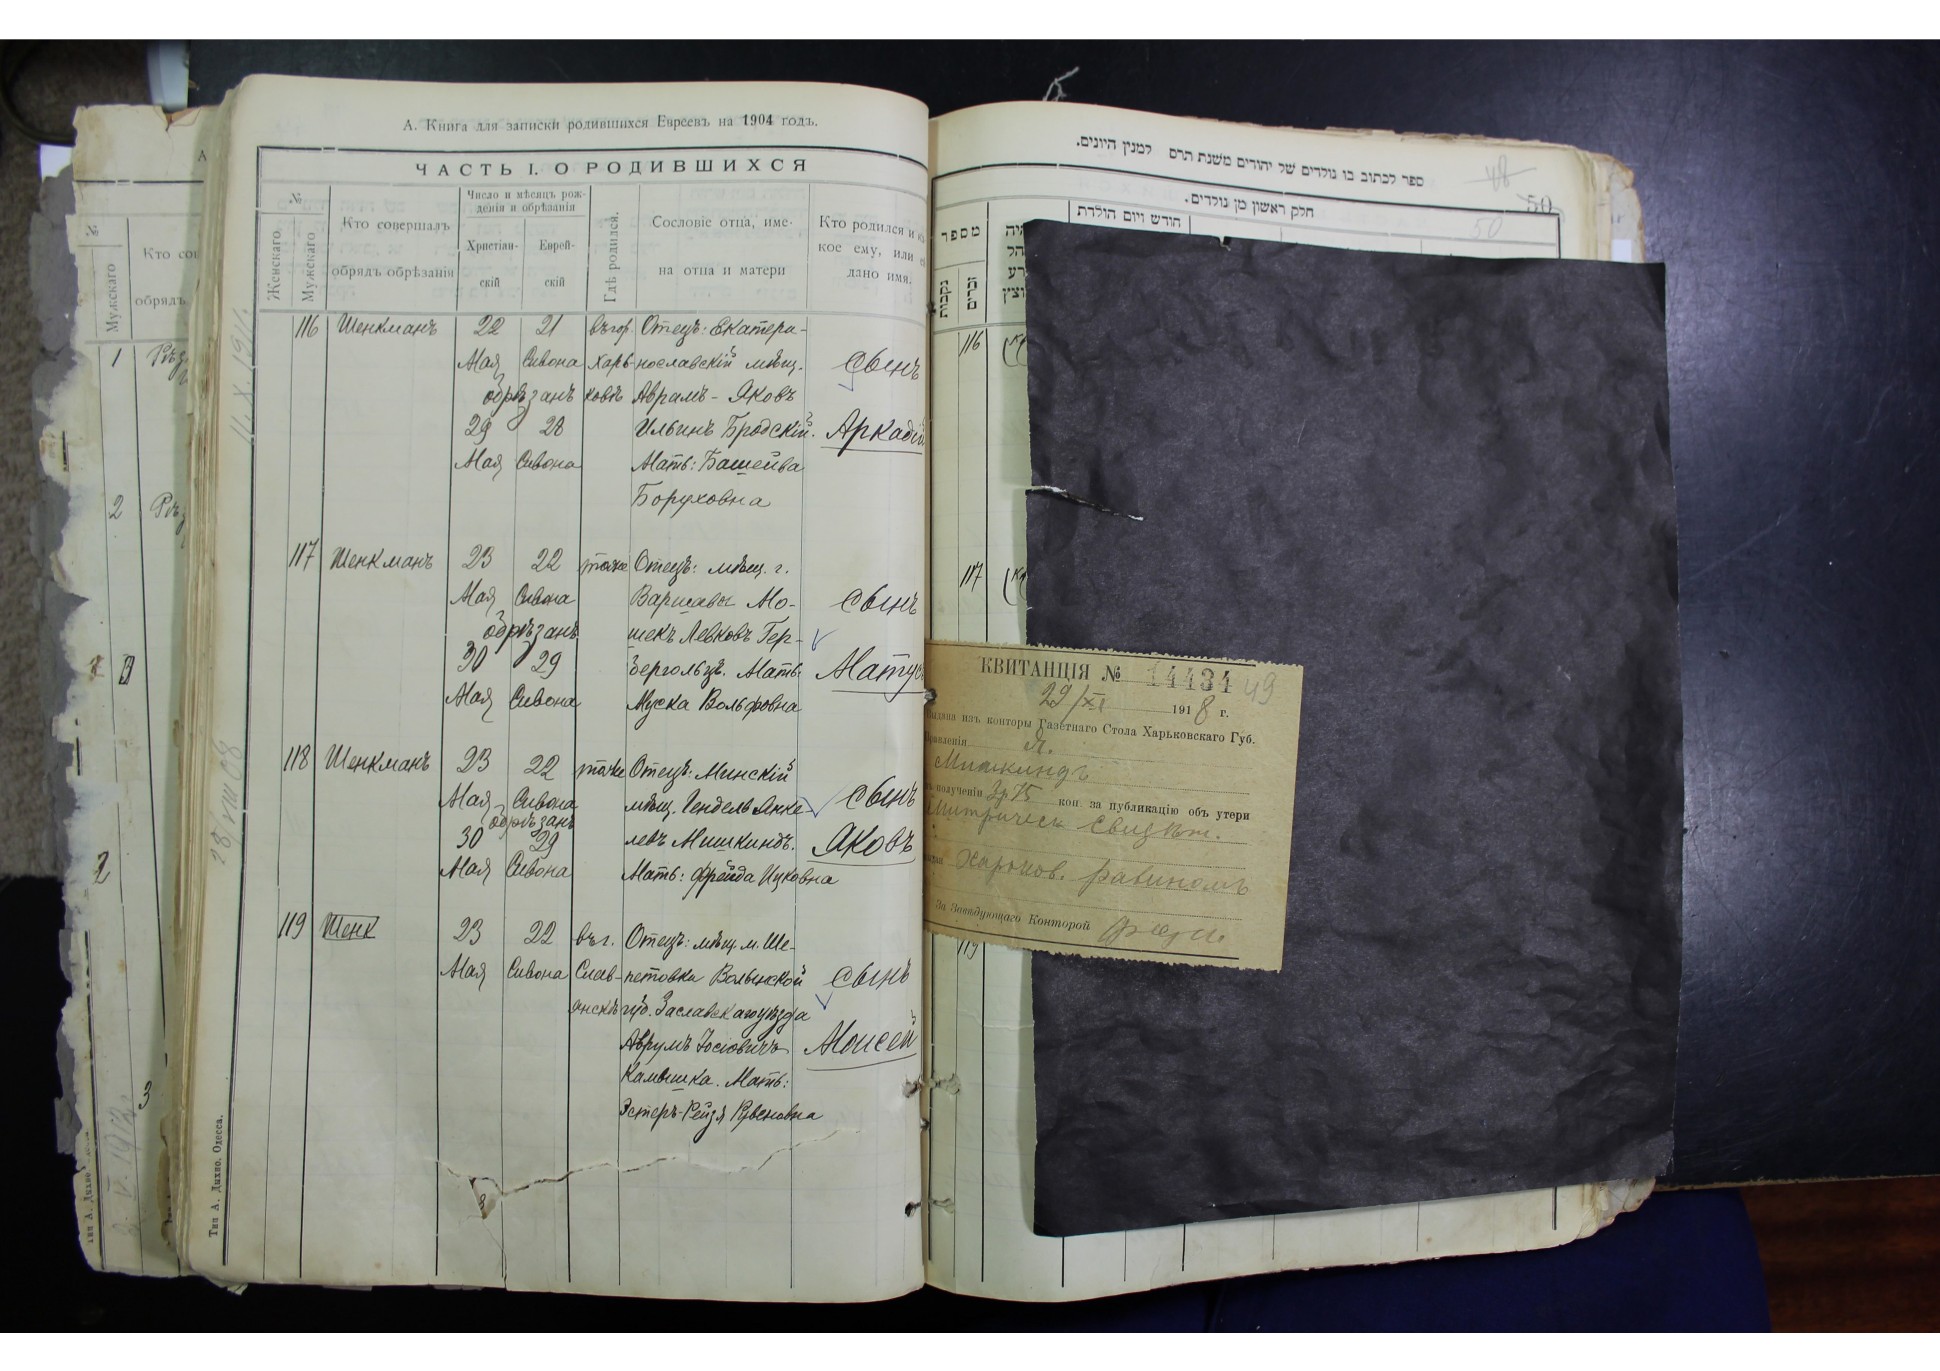 А. Книга для записки родившихся Евреевъ на 1904 годъ.
ЧАСТЬ I. О РОДИВШИХСЯ
№
Женскаго.
Мужскаго
Кто совершалъ
обрядъ обрѣзанія
Число и мѣсяцъ рож-
денія и обрѣзанія
Христіан-
скій
Еврей-
скій
Гдѣ родился.
Сословіе отца, име-
на отца и матери
Кто родился и
кое ему, или
дано имя.
116 Шенкманъ 22 21 въ гор. Отецъ: Екатери-
Мая Сивона Харь- нославскій мѣщ. Сынъ
обрѣзанъ ковѣ Аврамъ - Яковъ
29 28 Ильинъ Бродскій. Аркадій
Мая Сивона Мать: Башейва
Боруховна
117 Шенкманъ 23 22 тоже Отецъ: мѣщ. г.
Мая Сивона Варшавы Мо- Сынъ
обрѣзанъ шекъ Левковъ Гер-
30 29 Мать:
Мая Сивона Муска Вольфовна
118 Шенкманъ 23 22 тоже Отецъ: Минскій
Мая Сивона мѣщ. Гендель Янке- Сынъ
обрѣзанъ
30 29 левъ Мишкиндъ. Яковъ
Мая Сивона Мать: Фрейда Ицковна
119 Шенк 23 22 въ г. Отецъ: мѣщ. м. Ше-
Мая Сивона Слав- петовка Волынской Сынъ
янскѣ губ. Заславскаго уѣзда
Аврумъ Іосіовичъ Моисей
Камышка. Мать:
Эстеръ-Рейзя Рувеновна
Тип А. Дыхно. Одесса.
14.X.1911.
28/VIII 08
№
Мужскаго
Кто сов
обрядъ
1
2
2
3
ספר לכתוב בו נולדים של יהודים משנת תרס למנין היונים.
48
50
50
חלק ראשון מן נולדים.
מספר
נקבות
זכרים
חודש ויום הולדת
116
117
119
КВИТАНЦІЯ № 14434 49
29/XI 1918 г.
Выдана изъ конторы Газетнаго Стола Харьковскаго Губ.
Правленія Я.
Мишкиндъ
въ полученіи 3р75 коп. за публикацію объ утери
Метрическ свидѣт.
Харьков. равиномъ
За Завѣдующаго Конторой